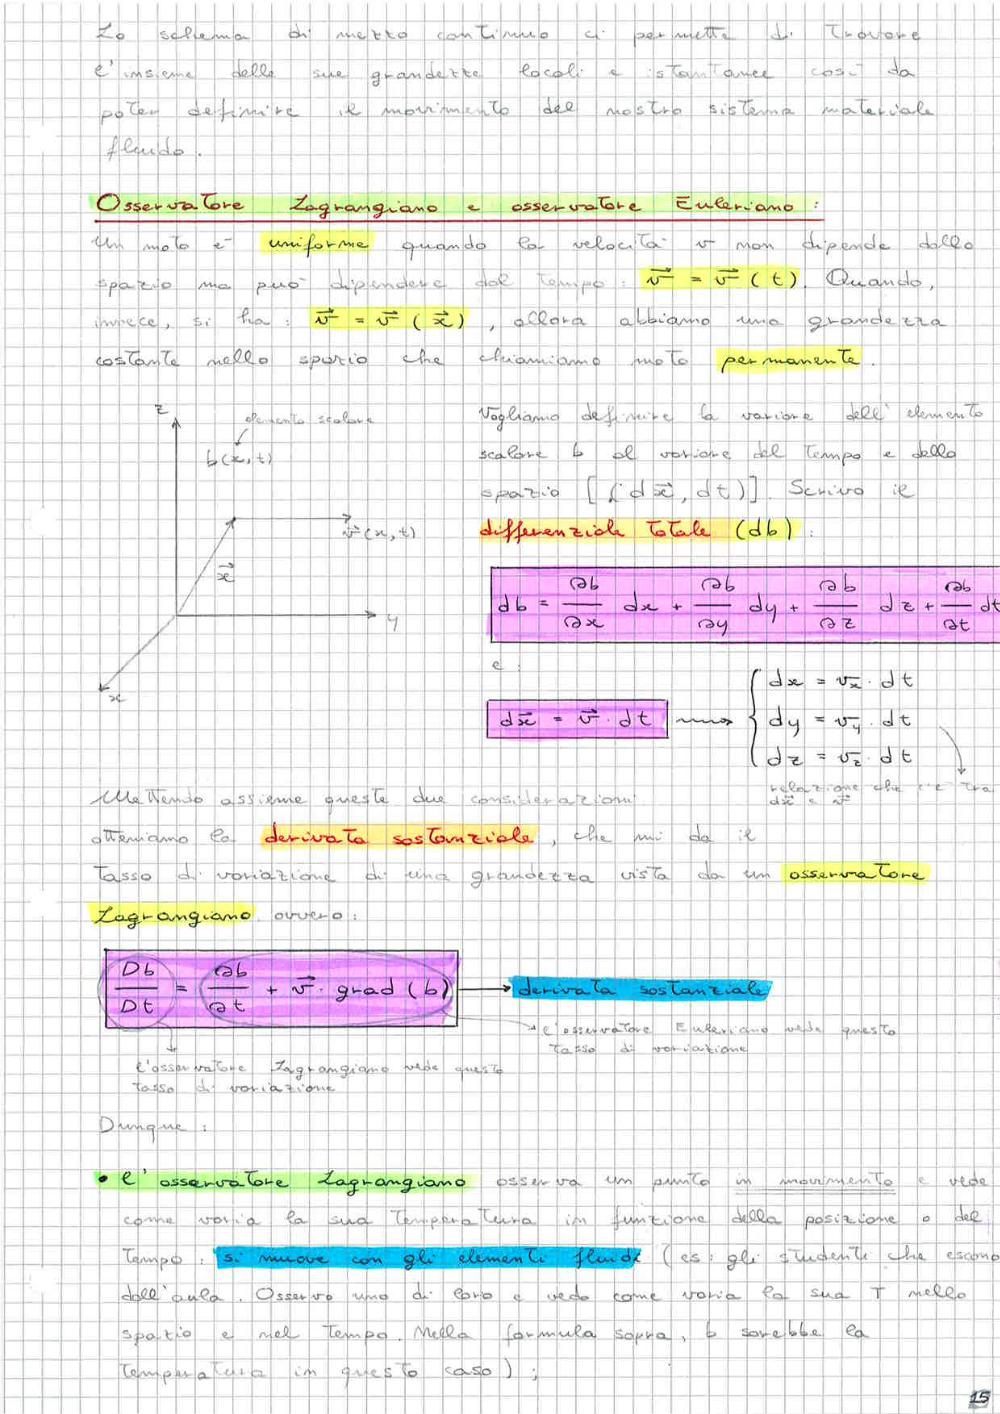 Lo schema di mezzo continuo ci permette di trovare
l'insieme delle sue grandezze locali e istantanee così da
poter definire il movimento del nostro sistema materiale
fluido.
Osservatore Lagrangiano e osservatore Euleriano:
Un moto è uniforme quando la velocità v non dipende dallo
spazio ma può dipendere dal tempo: v⃗ = v⃗ (t). Quando,
invece, si ha: v⃗ = v⃗ (x⃗), allora abbiamo una grandezza
costante nello spazio che chiamiamo moto permanente.
z
elemento scalare
b(x,t)
v⃗(x,t)
x⃗
y
x
Vogliamo definire la variare dell'elemento
scalare b al variare del tempo e dello
spazio [(dx⃗, dt)]. Scrivo il
differenziale totale (db):
db = ∂b/∂x dx + ∂b/∂y dy + ∂b/∂z dz + ∂b/∂t dt
e:
dx⃗ = v⃗ · dt ⟿ { dx = vx · dt
dy = vy · dt
dz = vz · dt
relazione che c'è tra
dx⃗ e v⃗
Mettendo assieme queste due considerazioni
otteniamo la derivata sostanziale, che mi da il
tasso di variazione di una grandezza vista da un osservatore
Lagrangiano ovvero:
Db/Dt = ∂b/∂t + v⃗ · grad (b) → derivata sostanziale
l'osservatore Euleriano vede questo
tasso di variazione
l'osservatore Lagrangiano vede questo
tasso di variazione
Dunque:
• l'osservatore Lagrangiano osserva un punto in movimento e vede
come varia la sua temperatura in funzione della posizione o del
tempo: si muove con gli elementi fluidi (es: gli studenti che escono
dall'aula. Osservo uno di loro e vedo come varia la sua T nello
spazio e nel tempo. Nella formula sopra, b sarebbe la
temperatura in questo caso);
15